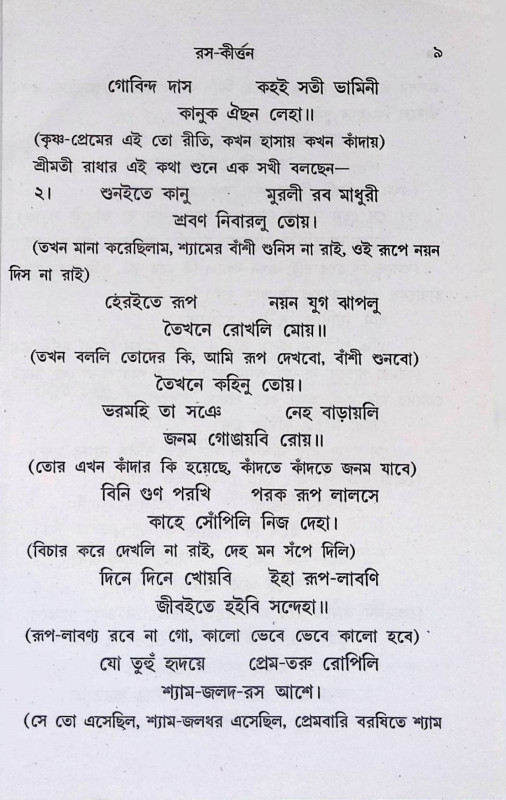 রস-কীর্ত্তন ৯
গোবিন্দ দাস কহই সতী ভামিনী
কানুক ঐছন লেহা॥
(কৃষ্ণ-প্রেমের এই তো রীতি, কখন হাসায় কখন কাঁদায়)
শ্রীমতী রাধার এই কথা শুনে এক সখী বলছেন—
২। শুনইতে কানু মুরলী রব মাধুরী
শ্রবণ নিবারলু তোয়।
(তখন মানা করেছিলাম, শ্যামের বাঁশী শুনিস না রাই, ওই রূপে নয়ন
দিস না রাই)
হেরইতে রূপ নয়ন যুগ ঝাপলু
তৈখনে রোখলি মোয়॥
(তখন বললি তোদের কি, আমি রূপ দেখবো, বাঁশী শুনবো)
তৈখনে কহিনু তোয়।
ভরমহি তা সঞে নেহ বাড়ায়লি
জনম গোঙায়বি রোয়॥
(তোর এখন কাঁদার কি হয়েছে, কাঁদতে কাঁদতে জনম যাবে)
বিনি গুণ পরখি পরক রূপ লালসে
কাহে সোঁপিলি নিজ দেহা।
(বিচার করে দেখলি না রাই, দেহ মন সঁপে দিলি)
দিনে দিনে খোয়বি ইহা রূপ-লাবণি
জীবইতে হইবি সন্দেহা॥
(রূপ-লাবণ্য রবে না গো, কালো ভেবে ভেবে কালো হবে)
যো তুহুঁ হৃদয়ে প্রেম-তরু রোপিলি
শ্যাম-জলদ-রস আশে।
(সে তো এসেছিল, শ্যাম-জলধর এসেছিল, প্রেমবারি বরষিতে শ্যাম